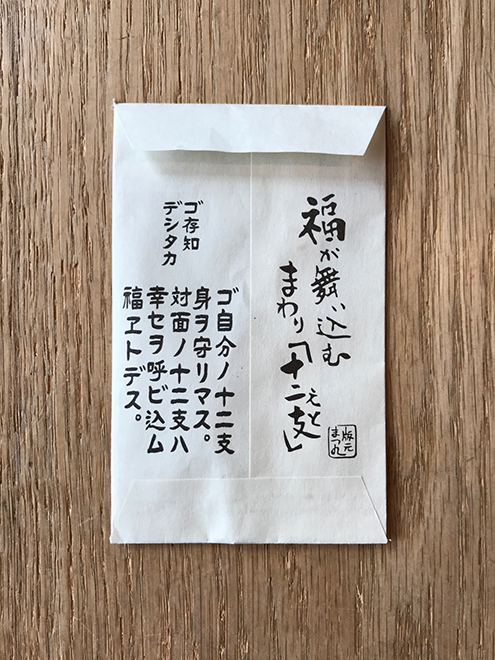 福が舞い込む
まわり「十二支」
えと
版元
まつ九
ゴ存知
デシタカ
ゴ自分ノ十二支
身ヲ守リマス。
対面ノ十二支ハ
幸セヲ呼ビ込ム
福ヱトデス。